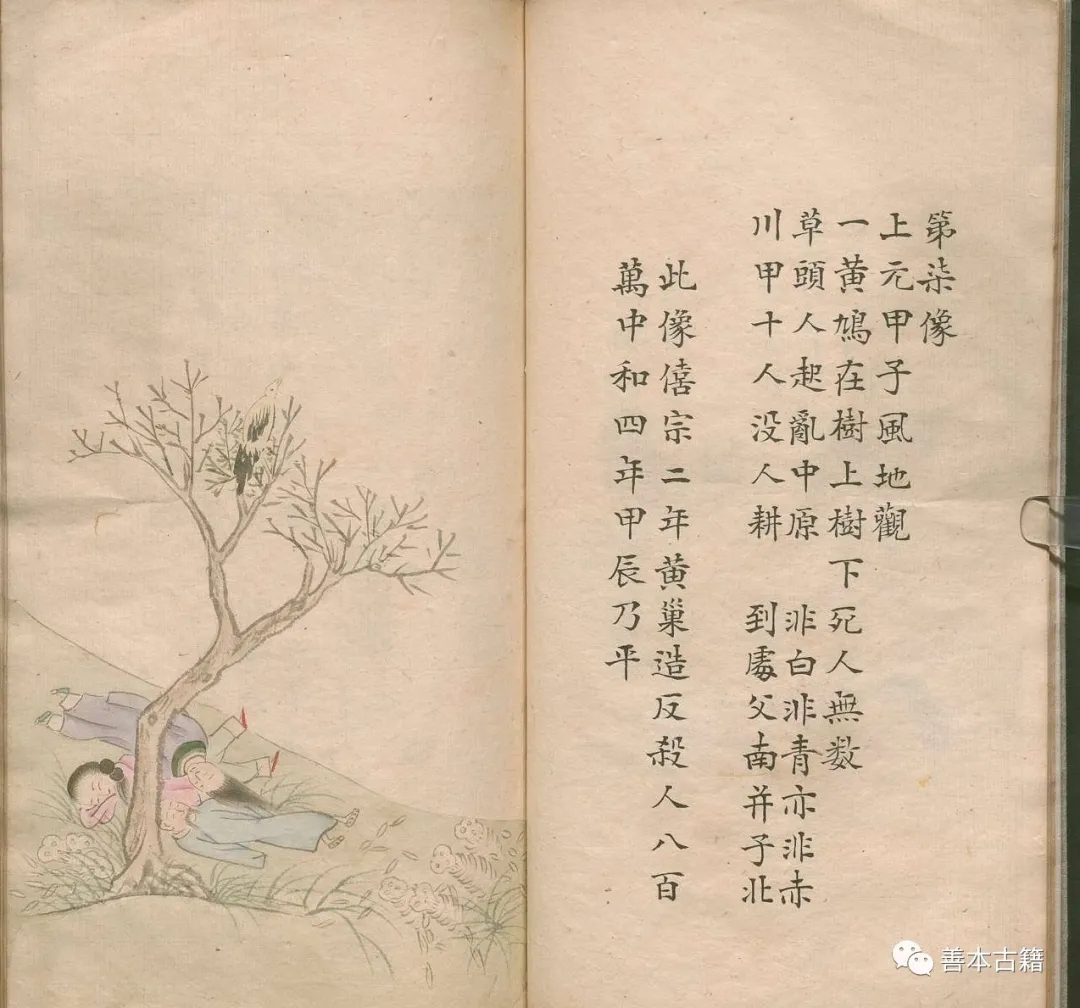 第柒像
上元甲子風地觀
一黃鳩在樹上樹下死人無数
草頭人起亂中原 非白非青亦非赤
川甲十人没人耕 到處父南并子北
此像僖宗二年黃巢造反殺人八百
萬中和四年甲辰乃平
善本古籍